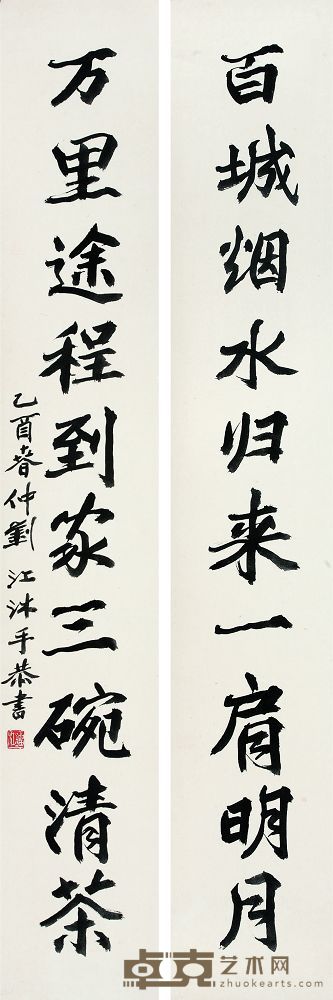 百城烟水归来一肩明月
万里途程到家三碗清茶
乙酉春仲刘江沐手恭书
卓克艺术网
zhuokearts.com